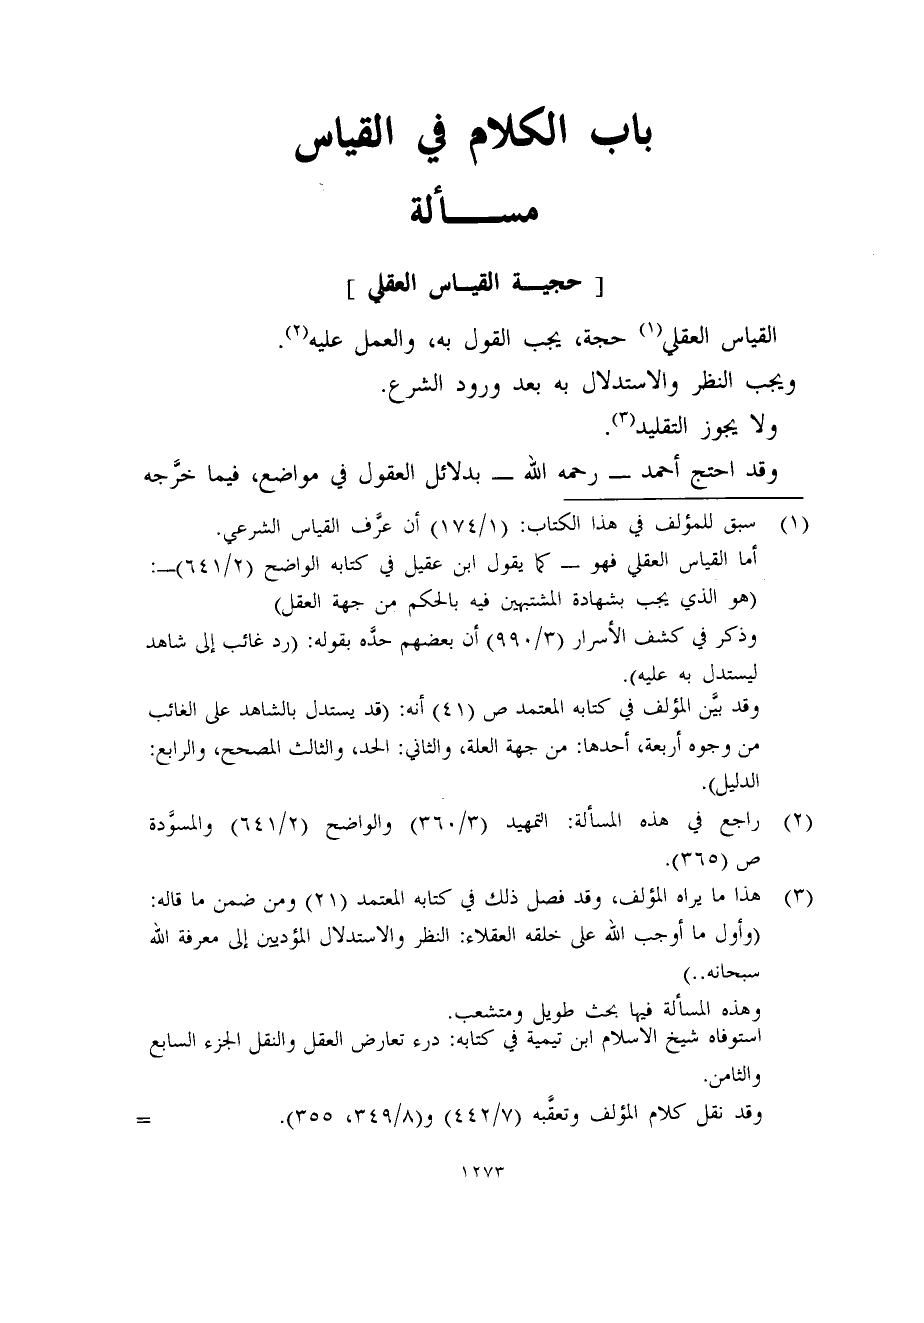 باب الكلام في القياس
مســـألة
[ حجيــة القيــاس العقلي ]
القياس العقلي(١) حجة، يجب القول به، والعمل عليه(٢).
ويجب النظر والاستدلال به بعد ورود الشرع.
ولا يجوز التقليد(٣).
وقد احتج أحمد ــ رحمه الله ــ بدلائل العقول في مواضع، فيما خرَّجه
(١) سبق للمؤلف في هذا الكتاب: (١٧٤/١) أن عرَّف القياس الشرعي.
أما القياس العقلي فهو ــ كما يقول ابن عقيل في كتابه الواضح (٦٤١/٢)ــ:
(هو الذي يجب بشهادة المشتبهين فيه بالحكم من جهة العقل)
وذكر في كشف الأسرار (٩٩٠/٣) أن بعضهم حدَّه بقوله: (رد غائب إلى شاهد
ليستدل به عليه).
وقد بيَّن المؤلف في كتابه المعتمد ص (٤١) أنه: (قد يستدل بالشاهد على الغائب
من وجوه أربعة، أحدها: من جهة العلة، والثاني: الحد، والثالث المصحح، والرابع:
الدليل).
(٢) راجع في هذه المسألة: التمهيد (٣٦٠/٣) والواضح (٦٤١/٢) والمسوَّدة
ص (٣٦٥).
(٣) هذا ما يراه المؤلف، وقد فصل ذلك في كتابه المعتمد (٢١) ومن ضمن ما قاله:
(وأول ما أوجب الله على خلقه العقلاء: النظر والاستدلال المؤديين إلى معرفة الله
سبحانه..)
وهذه المسألة فيها بحث طويل ومتشعب.
استوفاه شيخ الاسلام ابن تيمية في كتابه: درء تعارض العقل والنقل الجزء السابع
والثامن.
وقد نقل كلام المؤلف وتعقَّبه (٤٤٢/٧) و(٣٤٩/٨، ٣٥٥). =
١٢٧٣